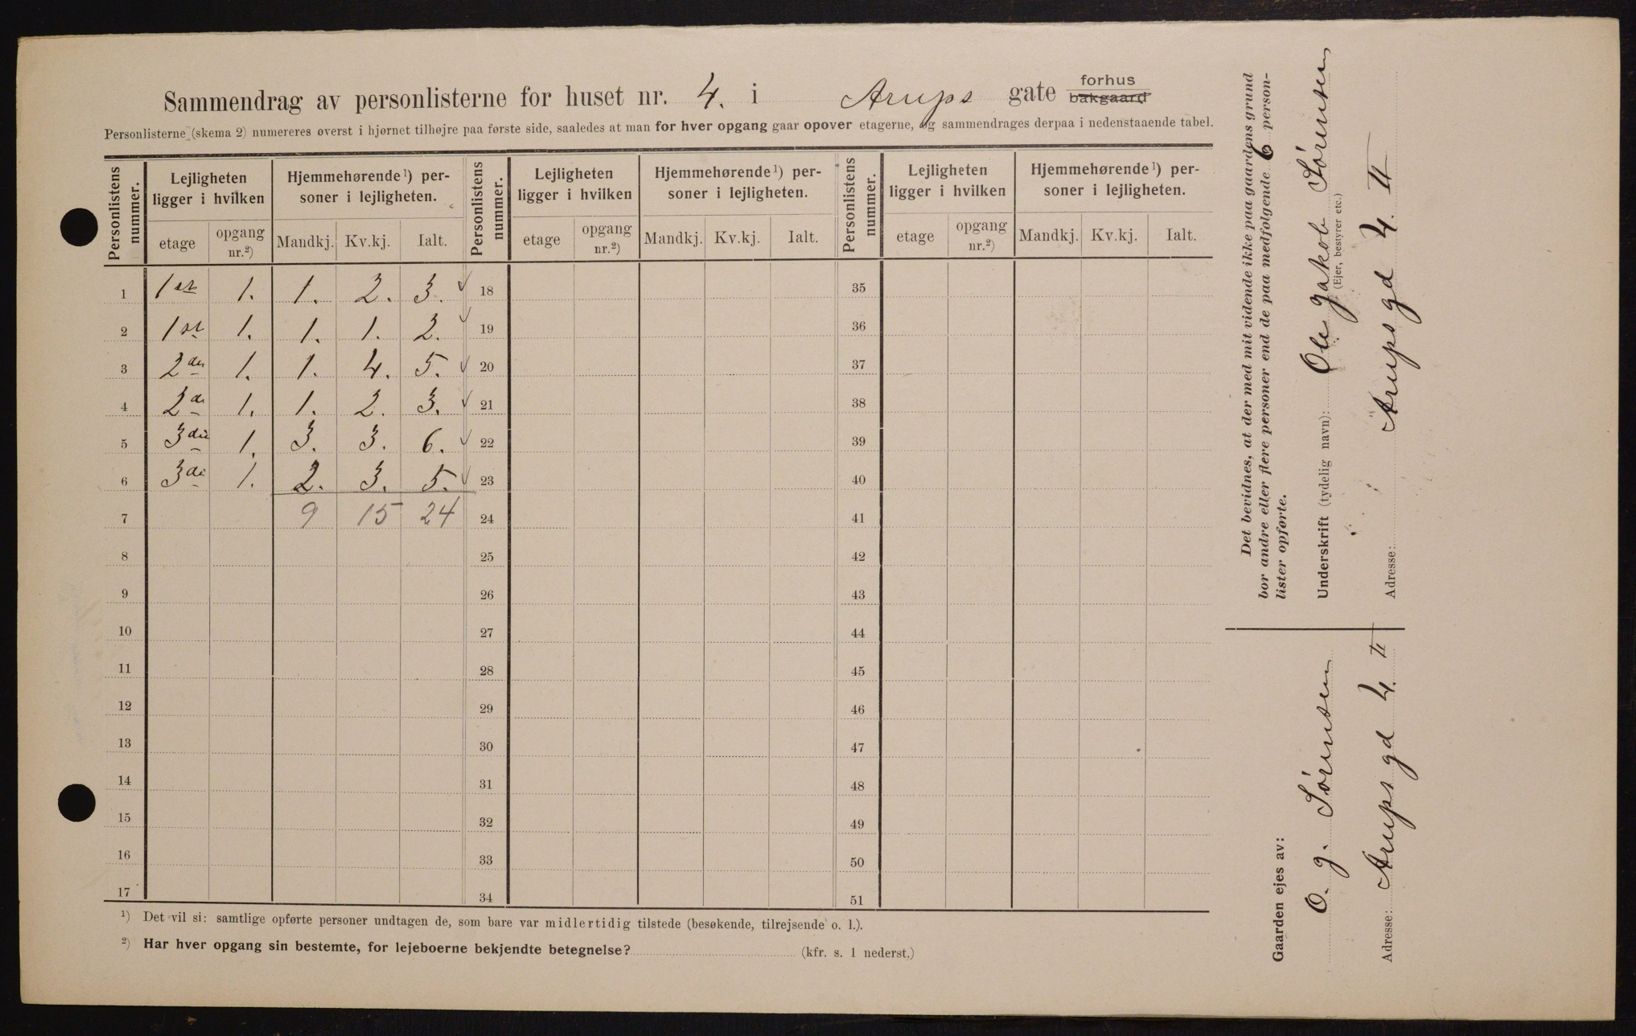 Sammendrag av personlisterne for huset nr. 4. i Arups gate forhus bakgaard
Personlisterne (skema 2) numereres øverst i hjørnet tilhøjre paa første side, saaledes at man for hver opgang gaar opover etagerne, og sammendrages derpaa i nedenstaaende tabel.
Personlistens nummer. Lejligheten ligger i hvilken Hjemmehørende ¹) personer i lejligheten. Personlistens nummer. Lejligheten ligger i hvilken Hjemmehørende ¹) personer i lejligheten. Personlistens nummer. Lejligheten ligger i hvilken Hjemmehørende ¹) personer i lejligheten.
etage opgang nr.²) Mandkj. Kv.kj. Ialt. etage opgang nr.²) Mandkj. Kv.kj. Ialt. etage opgang nr.²) Mandkj. Kv.kj. Ialt.
1 1st 1. 1. 2. 3. 18 35
2 1st 1. 1. 1. 2. 19 36
3 2den 1. 1. 4. 5. 20 37
4 2d. 1. 1. 2. 3. 21 38
5 3die 1. 3. 3. 6. 22 39
6 3di 1. 2. 3. 5. 23 40
7 9 15 24 24 41
8 25 42
9 26 43
10 27 44
11 28 45
12 29 46
13 30 47
14 31 48
15 32 49
16 33 50
17 34 51
¹) Det vil si: samtlige opførte personer undtagen de, som bare var midlertidig tilstede (besøkende, tilrejsende o. l.).
²) Har hver opgang sin bestemte, for lejeboerne bekjendte betegnelse? (kfr. s. 1 nederst.)
Det bevidnes, at der med mit vidende ikke paa gaardens grund
bor andre eller flere personer end de paa medfølgende 6 person-
lister opførte.
Underskrift (tydelig navn): Ole Jakob Sørensen
(Ejer, bestyrer etc.)
Adresse: Arups gd 4. II
Gaarden ejes av:
O. J. Sørensen
Adresse: Arups gd 4. II